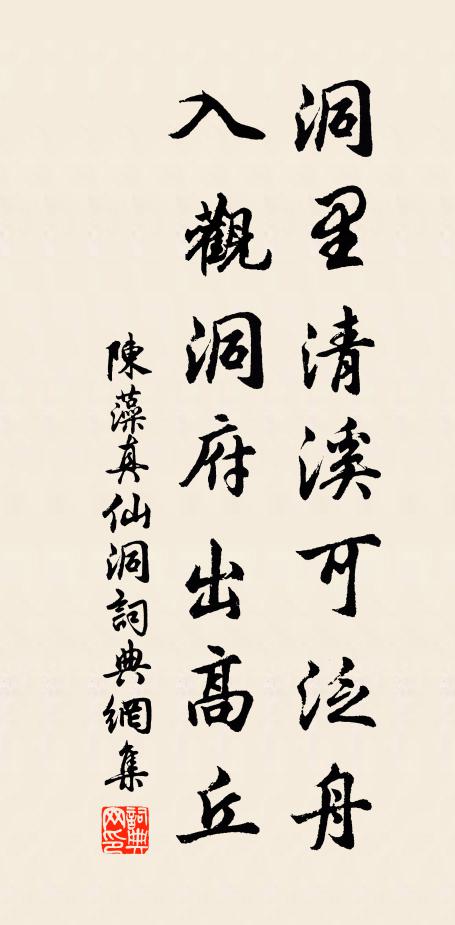 洞里清溪可泛舟
入觀洞府出高丘
陳藻真仙洞詞典網集
詞典網印